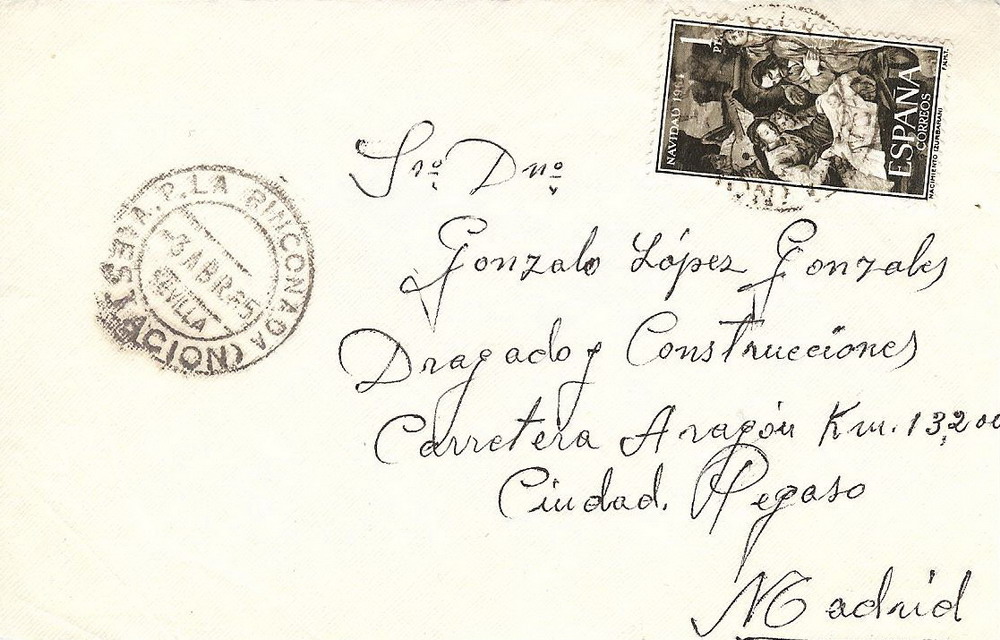 1 PTA
NAVIDAD 1964
ESPAÑA
CORREOS
NACIMIENTO (ZURBARAN)
F.N.M.T.
Sr. Dn.
Gonzalo López Gonzales
Dragado y Construcciones
Carretera Aragón Km. 13,200
Ciudad. Pegaso
Madrid
A.P. LA RINCONADA
(ESTACION)
-3 ABR. 65
SEVILLA